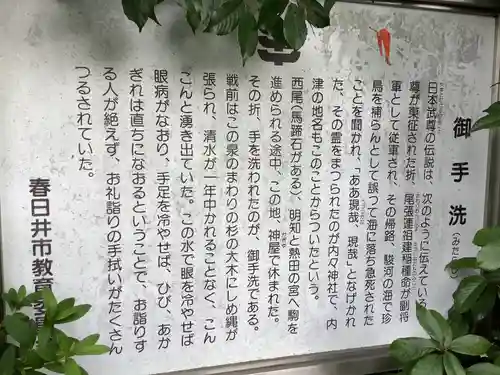 御手洗(みたらし)
日本武尊の伝説は、次のように伝えている。
尊が東征された折、尾張連祖建稲種命が副将
軍として従軍され、その帰路、駿河の海で珍
鳥を捕らんとして誤つて海に落ち急死された
ことを聞かれ、「ああ現哉 現哉」となげかれ
た、その霊をまつられたのが内々神社で、内
津の地名もこのことからついたという。
西尾(馬蹄石がある)、明知と熱田の宮へ駒を
進められる途中、この地、神屋で休まれた。
その折、手を洗われたのが、御手洗である。
戦前はこの泉のまわりの杉の大木にしめ縄が
張られ、清水が一年中かれることなく、こん
こんと湧き出ていた。この水で眼を冷やせば
眼病がなおり、手足を冷やせば、ひび、あか
ぎれは直ちになおるということで、お詣りす
る人が絶えず、お礼詣りの手拭いがたくさん
つるされていた。
春日井市教育委